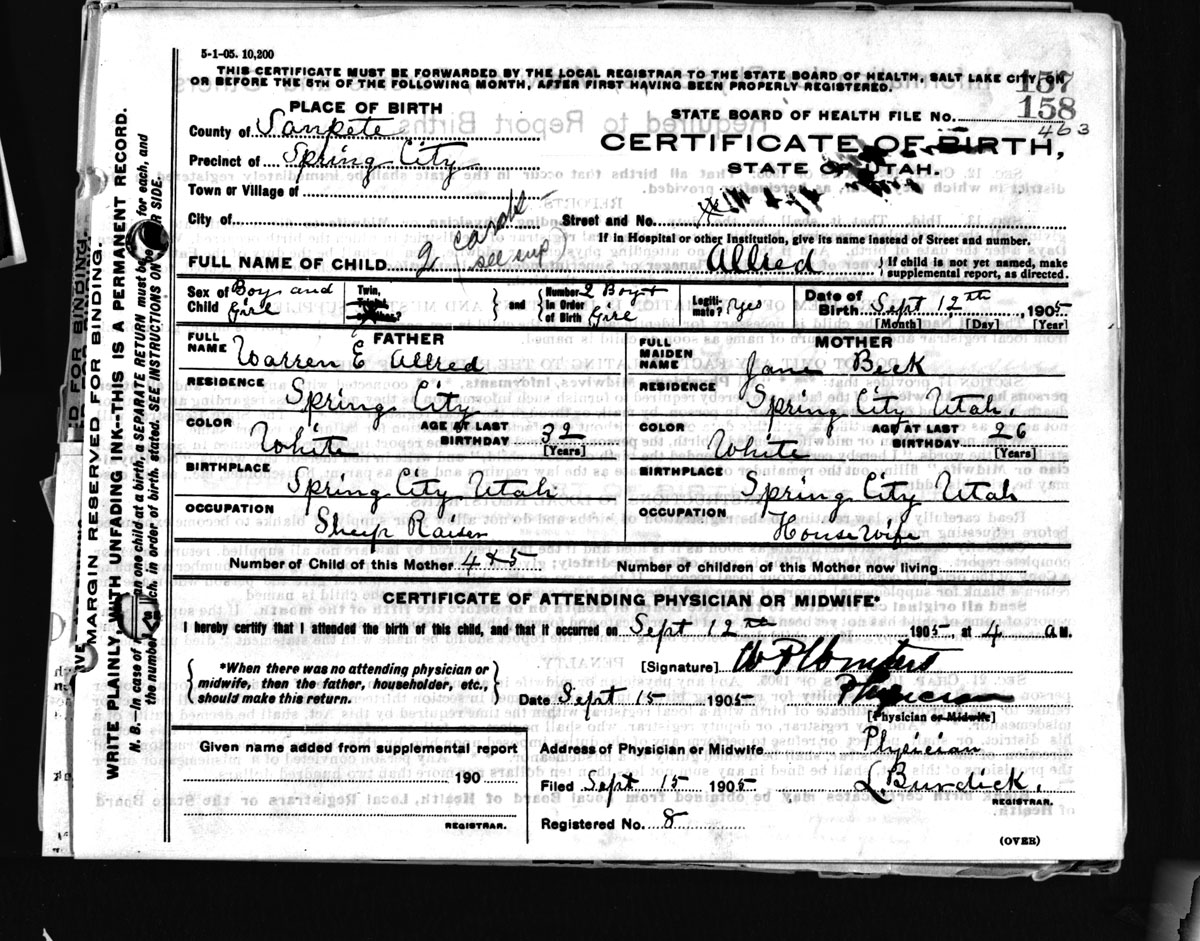 5-1-05. 10,200
THIS CERTIFICATE MUST BE FORWARDED BY THE LOCAL REGISTRAR TO THE STATE BOARD OF HEALTH, SALT LAKE CITY, ON
OR BEFORE THE 5TH OF THE FOLLOWING MONTH, AFTER FIRST HAVING BEEN PROPERLY REGISTERED.
157
158
463
PLACE OF BIRTH
STATE BOARD OF HEALTH FILE No.
County of Sanpete
CERTIFICATE OF BIRTH,
Precinct of Spring City
STATE OF UTAH.
Town or Village of
City of
Street and No.
If in Hospital or other Institution, give its name instead of Street and number.
FULL NAME OF CHILD 2 cards see sup Allred
If child is not yet named, make supplemental report, as directed.
Sex of Child Boy and Girl
Twin, and Number in Order of Birth 2 Boy + Girl
Legiti-mate? Yes
Date of Birth Sept 12th, 1905
[Month] [Day] [Year]
FATHER
FULL NAME Warren E Allred
RESIDENCE
Spring City
COLOR White AGE AT LAST BIRTHDAY 32
[Years]
BIRTHPLACE
Spring City Utah
OCCUPATION
Sheep Raiser
MOTHER
FULL MAIDEN NAME Jane Beck
RESIDENCE
Spring City Utah.
COLOR White AGE AT LAST BIRTHDAY 26
[Years]
BIRTHPLACE
Spring City Utah
OCCUPATION
House Wife
Number of Child of this Mother 4 & 5
Number of children of this Mother now living
CERTIFICATE OF ATTENDING PHYSICIAN OR MIDWIFE*
I hereby certify that I attended the birth of this child, and that it occurred on Sept 12th 1905, at 4 a M.
*When there was no attending physician or
midwife, then the father, householder, etc.,
should make this return.
[Signature]
Date Sept 15 1905 Physician
[Physician or Midwife]
Given name added from supplemental report
190
REGISTRAR.
Address of Physician or Midwife Physician
Filed Sept 15 1905 L. Burdick.
REGISTRAR.
Registered No. 8
(OVER)
MARGIN RESERVED FOR BINDING.
WRITE PLAINLY, WITH UNFADING INK--THIS IS A PERMANENT RECORD.
N. B.—In case of more than one child at a birth, a SEPARATE RETURN must be made for each, and
the number of each, in order of birth, stated. SEE INSTRUCTIONS ON OTHER SIDE.